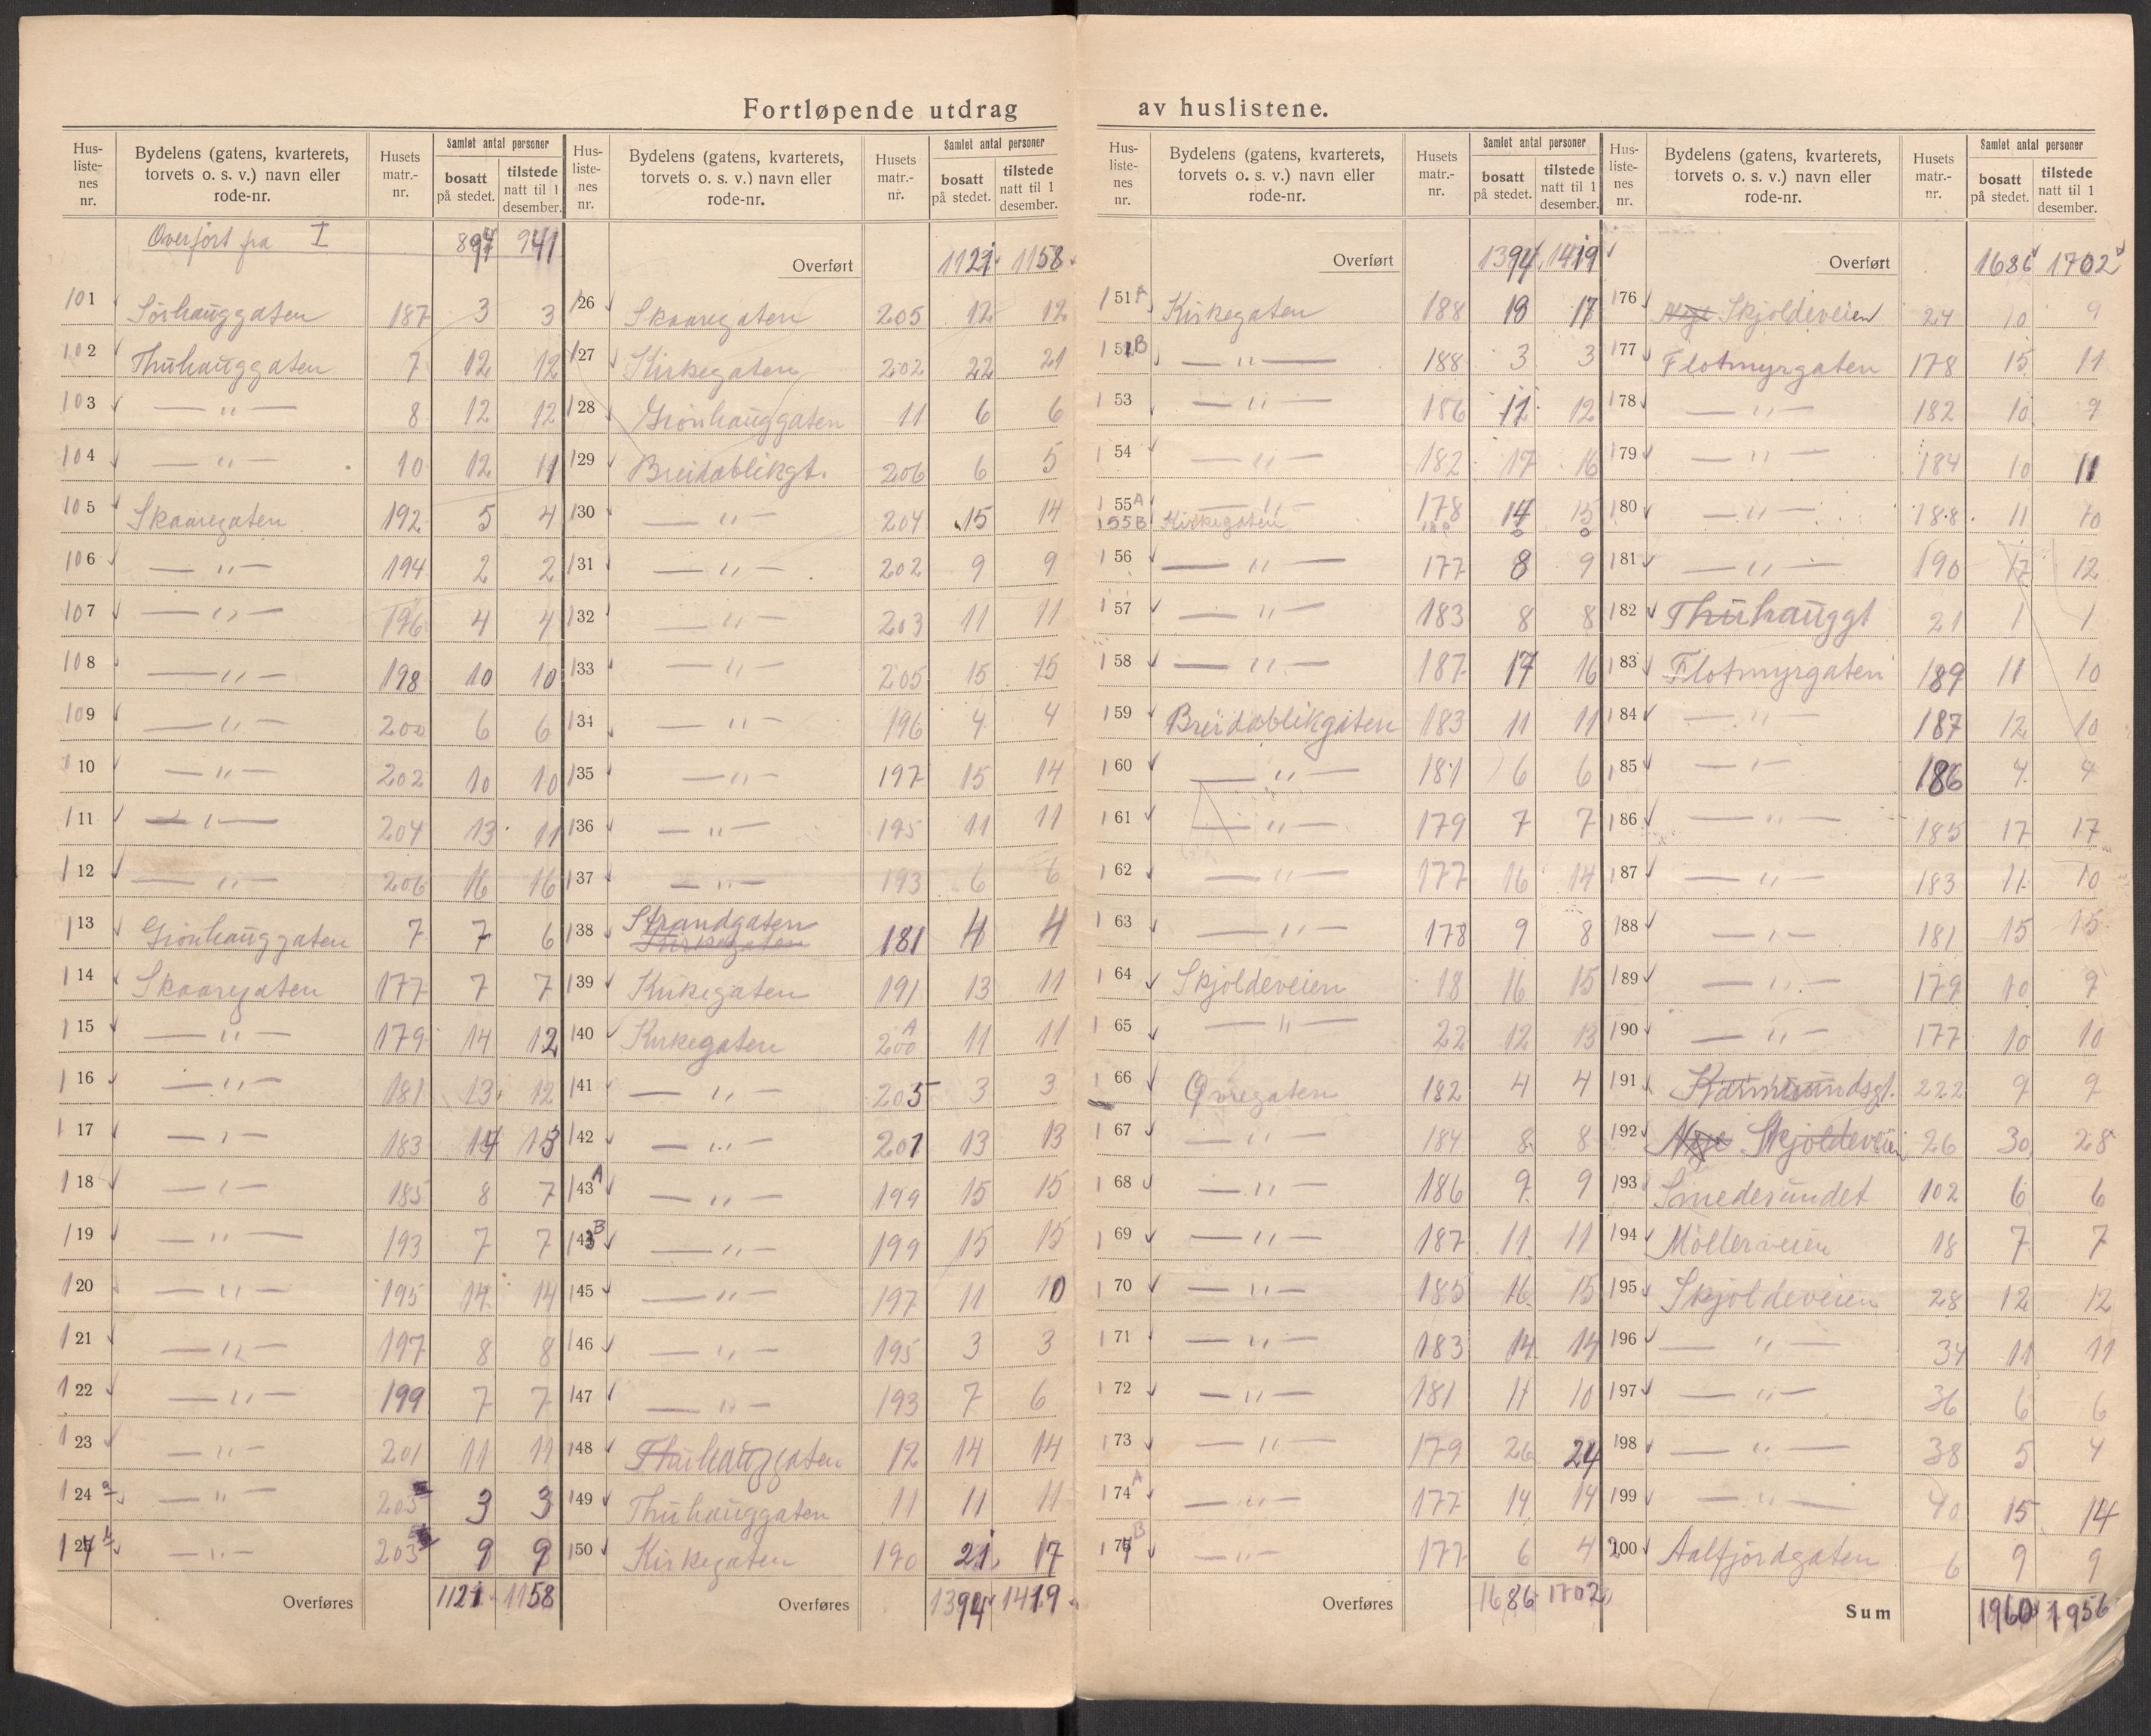 Fortløpende utdrag av huslistene.
Hus-liste-nes nr. | Bydelens (gatens, kvarterets, torvets o. s. v.) navn eller rode-nr. | Husets matr.-nr. | Samlet antal personer bosatt på stedet. | tilstede natt til 1 desember.
Overført fra I 894 941
101 Sörhauggaten 187 3 3
102 Thuhauggaten 7 12 12
103 — " — 8 12 12
104 — " — 10 12 11
105 Skaaregaten 192 5 4
106 — " — 194 2 2
107 — " — 196 4 4
108 — " — 198 10 10
109 — " — 200 6 6
110 — " — 202 10 10
111 — " — 204 13 11
112 — " — 206 16 16
113 Grönhauggaten 7 7 6
114 Skaaregaten 177 7 7
115 — " — 179 14 12
116 — " — 181 13 12
117 — " — 183 14 13
118 — " — 185 8 7
119 — " — 193 7 7
120 — " — 195 14 14
121 — " — 197 8 8
122 — " — 199 7 7
123 — " — 201 11 11
124 a — " — 203 3 3
124 b — " — 203 9 9
Overføres 1121 1158
Hus-liste-nes nr. | Bydelens (gatens, kvarterets, torvets o. s. v.) navn eller rode-nr. | Husets matr.-nr. | Samlet antal personer bosatt på stedet. | tilstede natt til 1 desember.
Overført 1121 1158
126 Skaaregaten 205 12 12
127 Kirkegaten 202 22 21
128 Grönhauggaten 11 6 6
129 Breidablikgt. 206 6 5
130 — " — 204 15 14
131 — " — 202 9 9
132 — " — 203 11 11
133 — " — 205 15 15
134 — " — 196 4 4
135 — " — 197 15 14
136 — " — 195 11 11
137 — " — 193 6 6
138 Strandgaten Kirkegaten 181 4 4
139 Kirkegaten 191 13 11
140 Kirkegaten 200 A 11 11
141 — " — 205 3 3
142 — " — 201 13 13
143 A — " — 199 15 15
143 B — " — 199 15 15
145 — " — 197 11 10
146 — " — 195 3 3
147 — " — 193 7 6
148 Thuhauggaten 12 14 14
149 Thuhauggaten 11 11 11
150 Kirkegaten 190 21 17
Overføres 1394 1419
Hus-liste-nes nr. | Bydelens (gatens, kvarterets, torvets o. s. v.) navn eller rode-nr. | Husets matr.-nr. | Samlet antal personer bosatt på stedet. | tilstede natt til 1 desember.
Overført 1394 1419
151 A Kirkegaten 188 19 17
151 B — " — 188 3 3
153 — " — 186 12 12
154 — " — 182 17 16
155 A — " — 178 14 15
155 B Kirkegaten 180 0 0
156 — " — 177 8 9
157 — " — 183 8 8
158 — " — 187 17 16
159 Breidablikgaten 183 11 11
160 — " — 181 6 6
161 — " — 179 7 7
162 — " — 177 16 14
163 — " — 178 9 8
164 Skjoldeveien 18 16 15
165 — " — 22 12 13
166 Øvregaten 182 4 4
167 — " — 184 8 8
168 — " — 186 9 9
169 — " — 187 11 11
170 — " — 185 16 15
171 — " — 183 14 14
172 — " — 181 11 10
173 — " — 179 26 24
174 A — " — 177 14 14
174 B — " — 177 6 4
Overføres 1686 1702
Hus-liste-nes nr. | Bydelens (gatens, kvarterets, torvets o. s. v.) navn eller rode-nr. | Husets matr.-nr. | Samlet antal personer bosatt på stedet. | tilstede natt til 1 desember.
Overført 1686 1702
176 Skjoldeveien 24 10 9
177 Flotmyrgaten 178 15 11
178 — " — 182 10 9
179 — " — 184 10 11
180 — " — 188 11 10
181 — " — 190 17 12
182 Thuhauggt 21 1 1
183 Flotmyrgaten 189 11 10
184 — " — 187 12 10
185 — " — 186 4 4
186 — " — 185 17 17
187 — " — 183 11 10
188 — " — 181 15 15
189 — " — 179 10 9
190 — " — 177 10 10
191 Karmsundsgt. 222 9 9
192 Skjoldeveien 26 30 28
193 Smedesundet 102 6 6
194 Möllerveien 18 7 7
195 Skjoldeveien 28 12 12
196 — " — 34 11 11
197 — " — 36 6 6
198 — " — 38 5 4
199 — " — 40 15 14
200 Aalfjordgaten 6 9 9
Sum 1960 1956